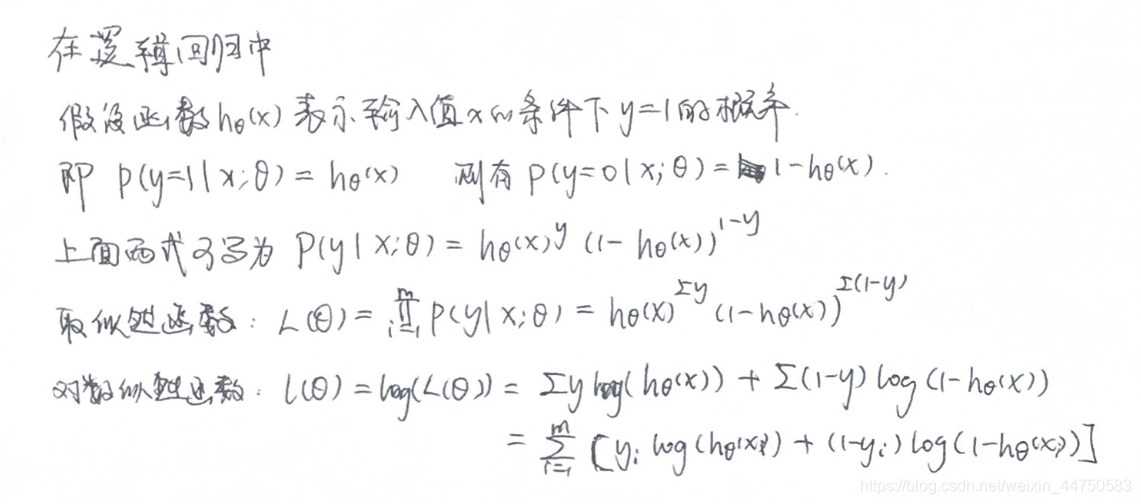 在逻辑回归中
假设函数hθ(x)表示输入值x的条件下y=1的概率.
即 P(y=1|x;θ)=hθ(x) 则有 P(y=0|x;θ)=1-hθ(x).
上面两式可写为 P(y|x;θ)=hθ(x)^y (1-hθ(x))^(1-y)
取似然函数: L(θ)=∏_{i=1}^{m} P(y|x;θ)=hθ(x)^(Σy) (1-hθ(x))^(Σ(1-y))
对数似然函数: l(θ)=log(L(θ))=Σy log(hθ(x))+Σ(1-y)log(1-hθ(x))
=∑_{i=1}^{m}[y_i log(hθ(x_i))+(1-y_i)log(1-hθ(x_i))]
https://blog.csdn.net/weixin_44750583